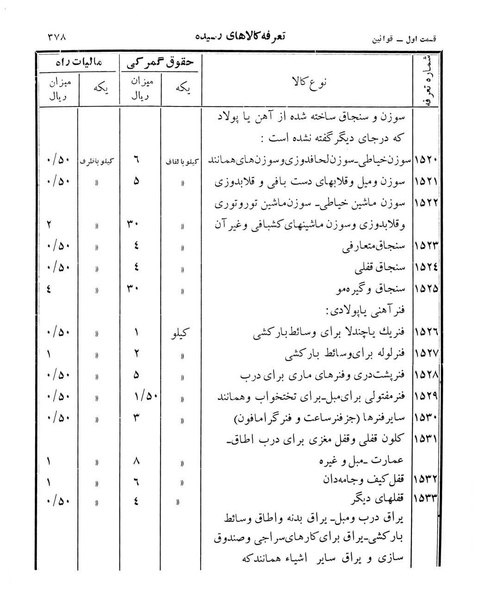 قسمت اول ــ قوانین تعرفه کالاهای رسیده ۳۷۸
شماره تعرفه نوع کالا حقوق گمرکی مالیات راه
یکه میزان ریال یکه میزان ریال
سوزن و سنجاق ساخته شده از آهن یا پولاد
که درجای دیگر گفته نشده است :
۱۵۲۰ سوزن خیاطی ــ سوزن لحافدوزی و سوزن های همانند کیلو با لفاف ۶ کیلو با ظرف ۰/۵۰
۱۵۲۱ سوزن و میل و قلابهای دست بافی و قلابدوزی » ۵ » ۰/۵۰
۱۵۲۲ سوزن ماشین خیاطی ــ سوزن ماشین توروتوری
و قلابدوزی و سوزن ماشینهای کشبافی و غیر آن » ۳۰ » ۲
۱۵۲۳ سنجاق متعارفی » ۴ » ۰/۵۰
۱۵۲٤ سنجاق قفلی » ٤ » ۰/۵۰
۱۵۲۵ سنجاق و گیره مو » ۳۰ » ٤
فنر آهنی یا پولادی:
۱۵۲۶ فنر یك یا چند لا برای وسائط بارکشی کیلو ۱ » ۰/۵۰
۱۵۲۷ فنر لوله برای وسائط بارکشی » ۲ » ۱
۱۵۲۸ فنر پشت دری و فنرهای ماری برای درب » ۵ » ۰/۵۰
۱۵۲۹ فنر مفتولی برای مبل ــ برای تختخواب و همانند » ۱/۵۰ » ۰/۵۰
۱۵۳۰ سایر فنرها (جز فنر ساعت و فنر گرامافون) » ۳ » ۰/۵۰
۱۵۳۱ کلون قفلی و قفل مغزی برای درب اطاق ــ
عمارت ــ مبل و غیره » ۸ » ۱
۱۵۳۲ قفل کیف و جامه دان » ۶ » ۱
۱۵۳۳ قفلهای دیگر » ٤ » ۰/۵۰
یراق درب و مبل ــ یراق بدنه و اطاق وسائط
بارکشی ــ یراق برای کارهای سراجی و صندوق
سازی و یراق سایر اشیاء همانند که